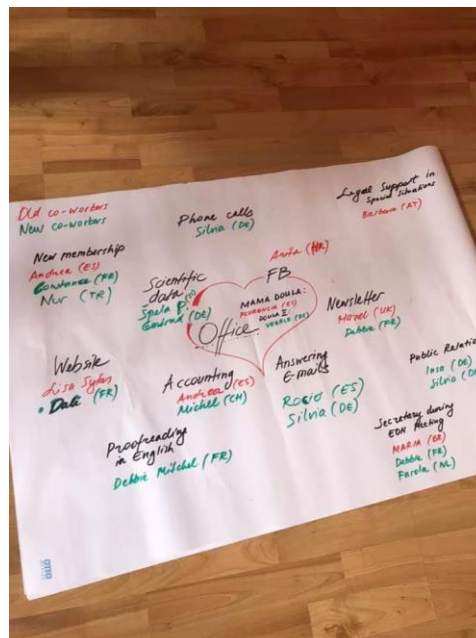 Old co-workers
New co-workers
Phone calls
Silvia (DE)
Legal Support in
Special Situations
Barbara (AT)
New membership
Andrea (ES)
Constance (FR)
Nur (TR)
Scientific
data
Spela
Gertrud (DE)
Anita (HR)
FB
MAMA DOULA:
FLORENCIA (ES)
DOULA I:
Office
Newsletter
Hazel (UK)
Debbie (FR)
Website
Lisa Sykes
• Dali (FR)
Accounting
Andrea (ES)
Michel (CH)
Answering
E-mails
Rocio (ES)
Silvia (DE)
Public Relatio
Inso (DE)
Silvia (D
Proofreading
in English
Debbie Mitchel (FR)
Secretary during
EDN Meeting
MARIA (GR)
Debbie (FR)
Farola (NL)